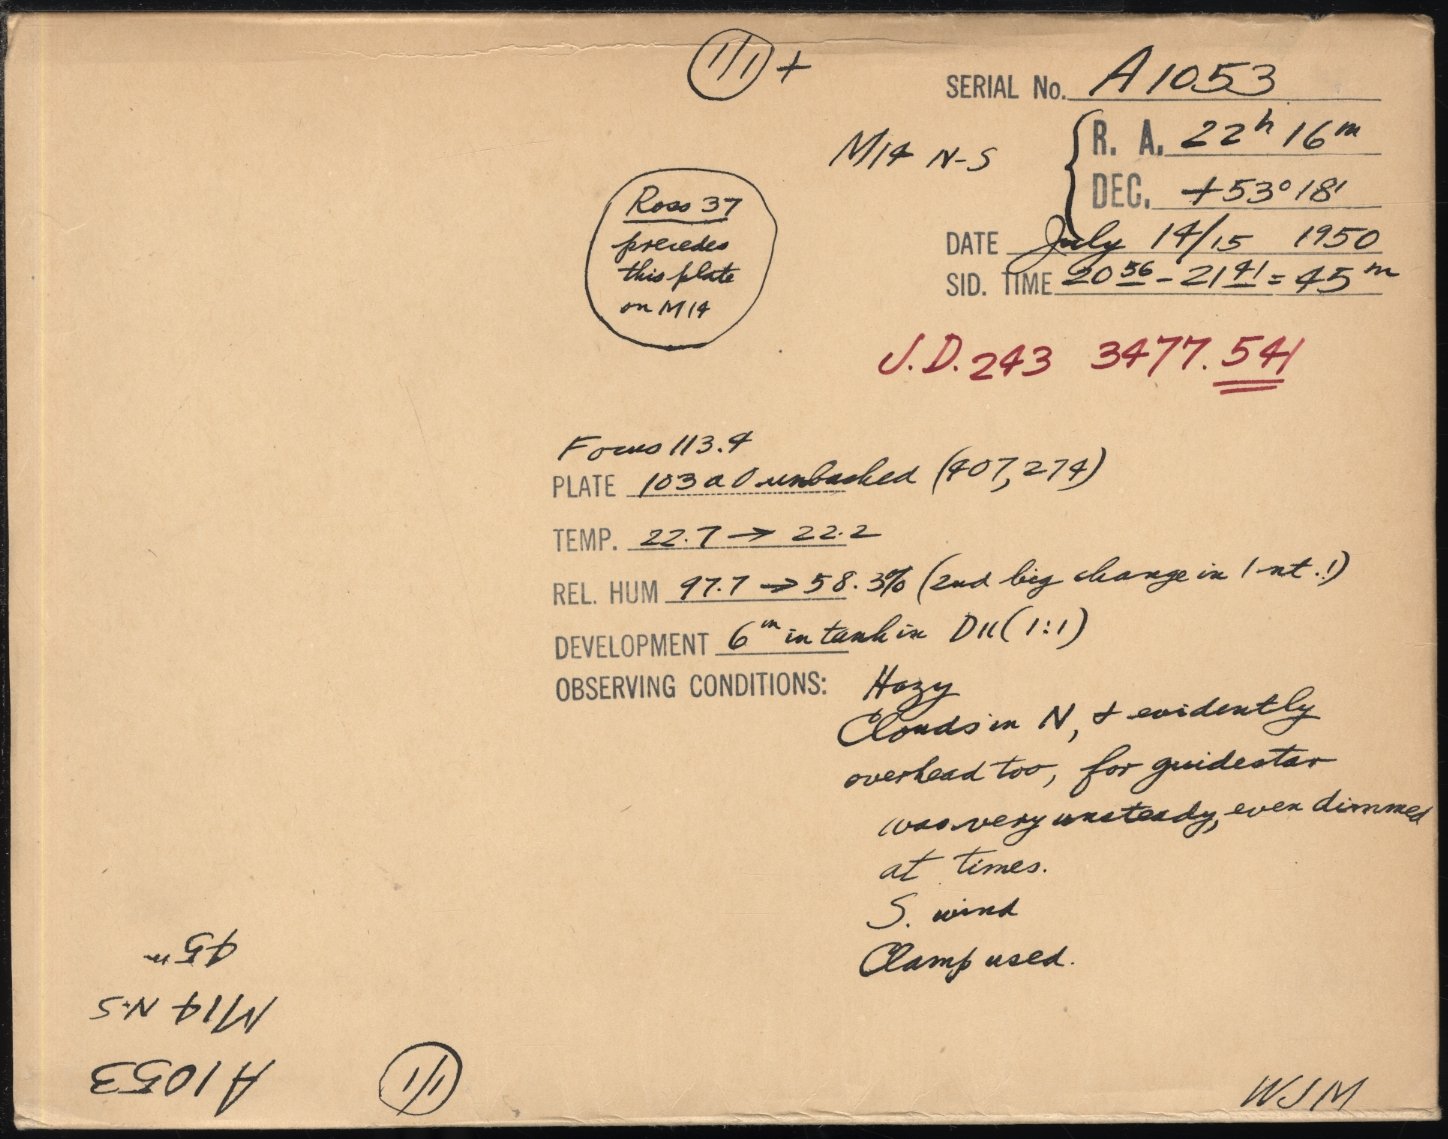 1/1 +
SERIAL No. A1053
M14 N-S
R. A. 22h 16m
DEC. +53° 18'
DATE July 14/15 1950
SID. TIME 20 56 - 21 41 = 45 m
Ross 37
precedes
this plate
on M14
J.D. 243 3477.541
Focus 113.4
PLATE 103aO unbacked (407,274)
TEMP. 22.7 → 22.2
REL. HUM 97.7 → 58.3% (2nd big change in 1 nt.!)
DEVELOPMENT 6m in tank in D11 (1:1)
OBSERVING CONDITIONS: Hazy
Clouds in N, & evidently
overhead too, for guidestar
was very unsteady, even dimmed
at times.
S. wind
Clamp used.
WJM
A1053
M14 N-S
45m
1/1